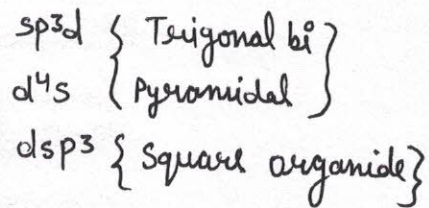 sp³d { Trigonal bi }
d⁴s { Pyramidal }
dsp³ { Square organide }